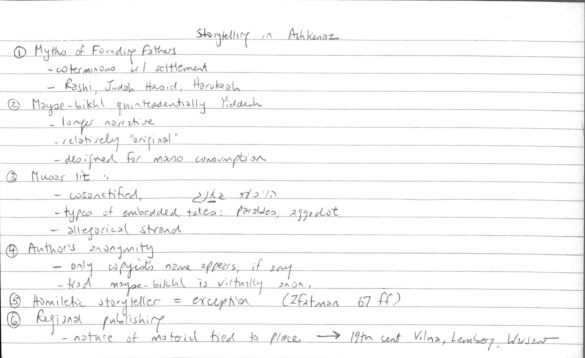 Storytelling in Ashkenaz
① Myths of Founding Fathers
- coterminous w/ settlement
- Rashi, Judah Hasid, Harokeah
② Mayse-bikhl quintessentially Yiddish
- longer narrative
- relatively "original"
- designed for mass consumption
③ Musar lit
- cosanctified,
- types of embedded tales: parables, aggadot
- allegorical strand
④ Author's anonymity
- only copyist's name appears, if any
- trad mayse-bikhl is virtually anon.
⑤ Homiletic storyteller = exception (Zfatman 67 ff)
⑥ Regional publishing
- nature of material tied to place → 19th cent Vilna, Lemberg, Warsaw